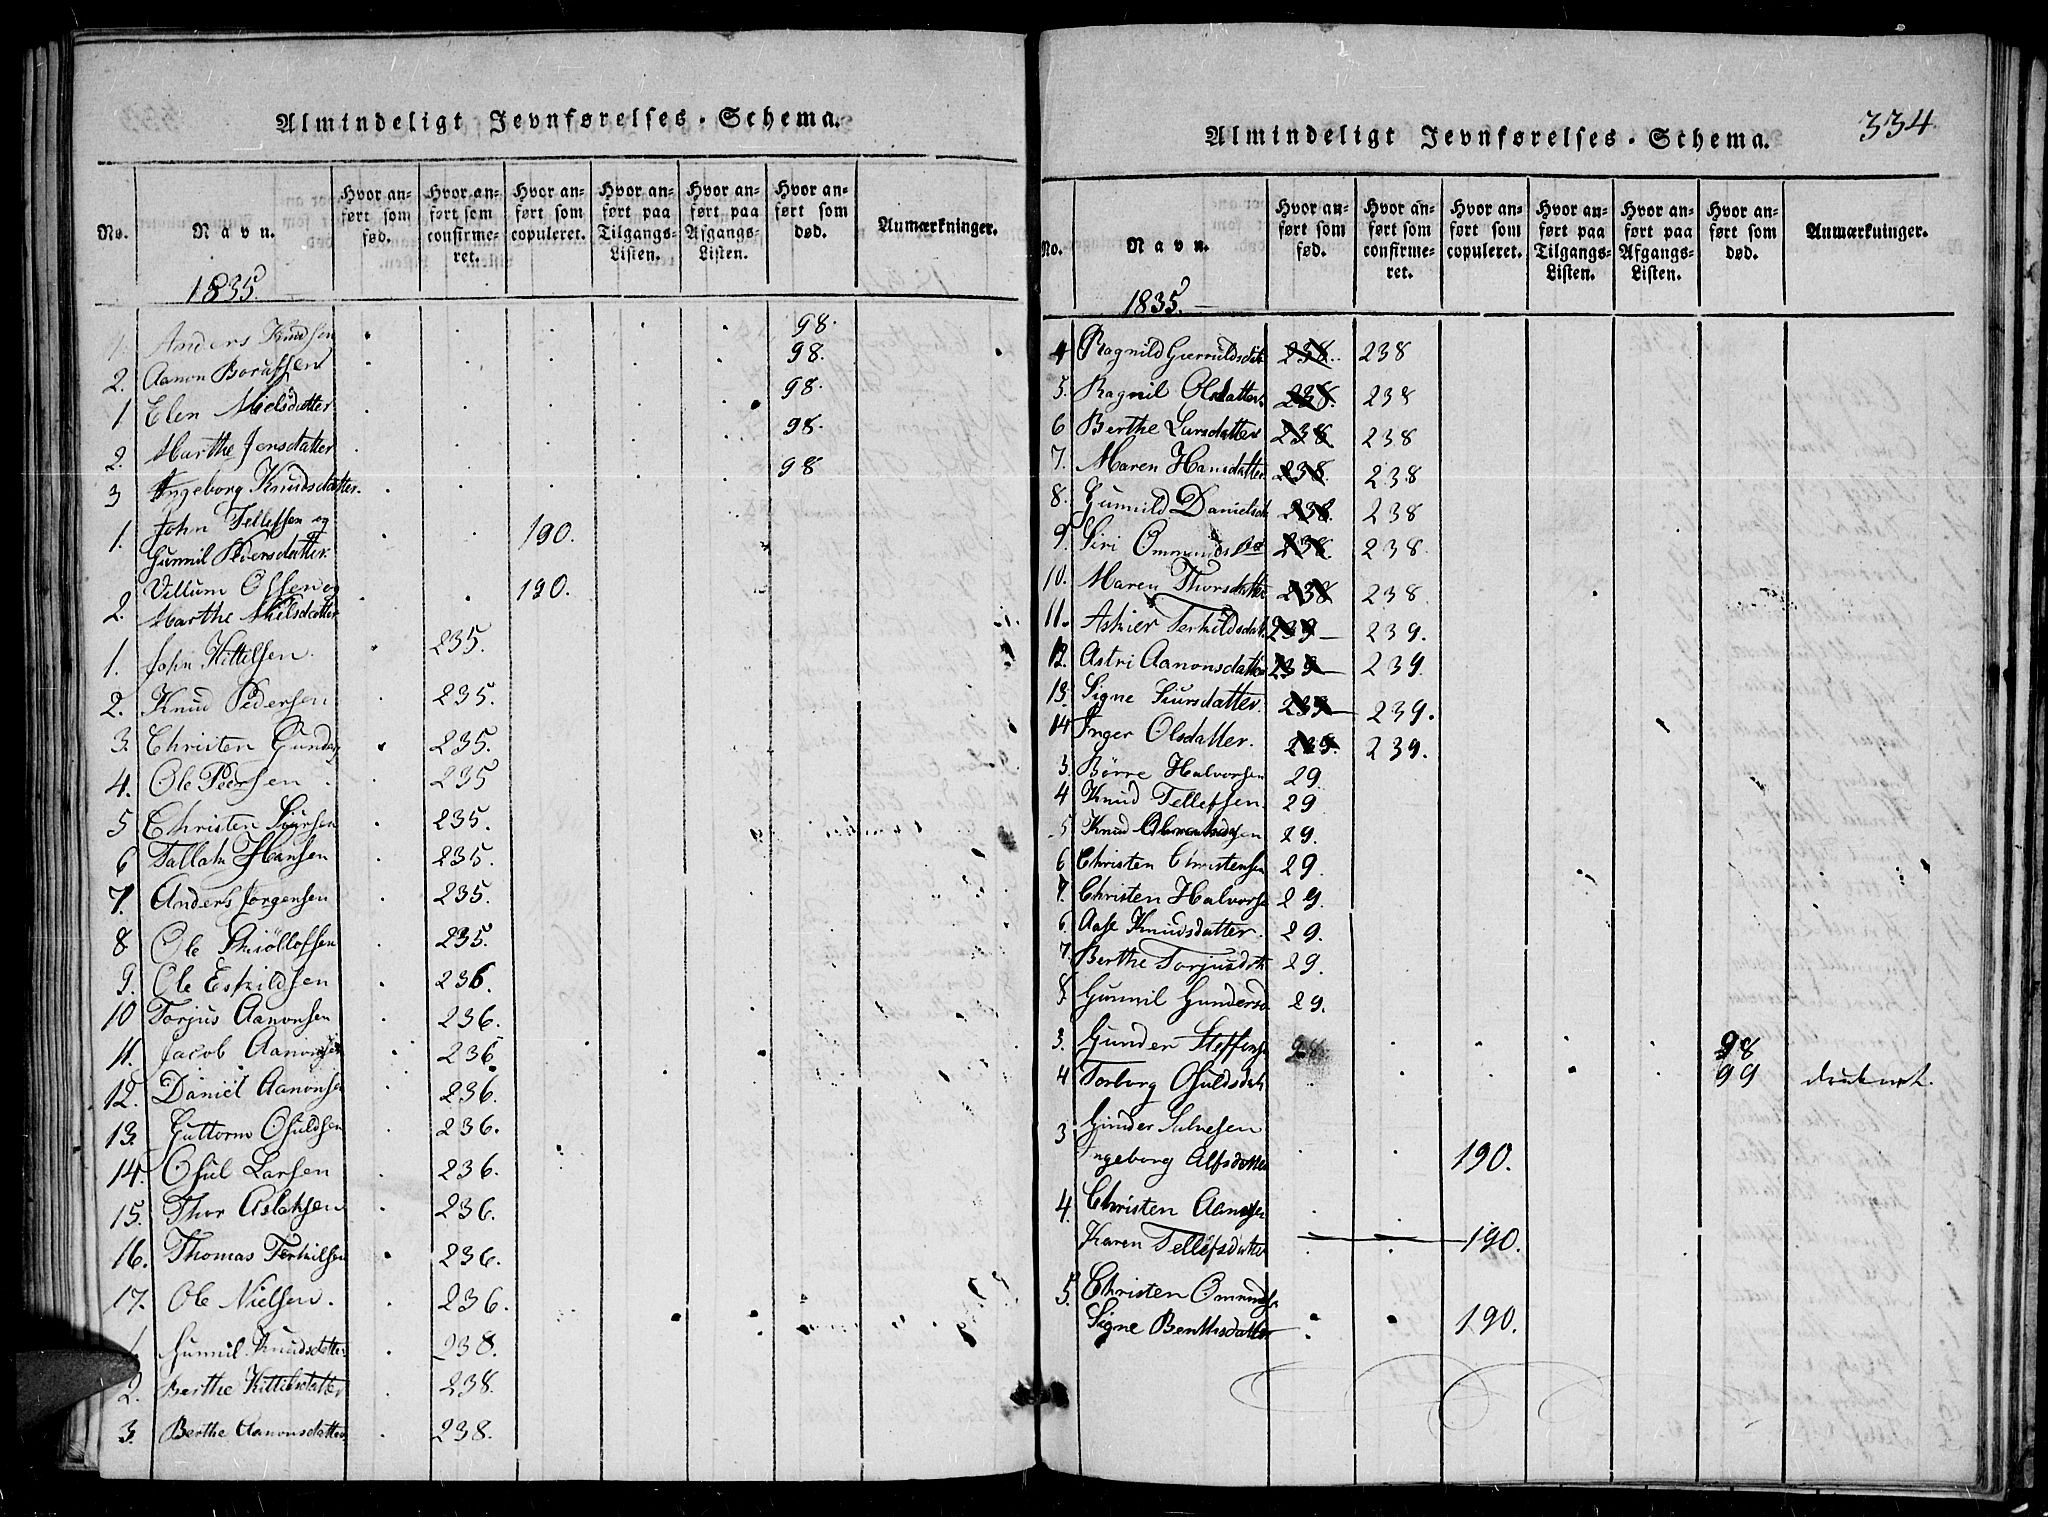 Almindeligt Jevnførelses-Schema.
No. Navn. Hvor anført som fød. Hvor anført som confirmeret. Hvor anført som copuleret. Hvor anført paa Tilgangs-Listen. Hvor anført paa Afgangs-Listen. Hvor anført som død. Anmærkninger.
1835.
1. Anders Knudsen 98.
2. Aanon 98.
1 Elen Nielsdatter 98.
2. Marthe Jensdatter 98.
3 Ingeborg Knudsdatter. 98
1. John Tellefsen og
Gunnil Pedersdatter. 190.
2. Villum Olsen og
Marthe Nielsdatter 190.
1. John Kittelsen. 235.
2. Knud Pedersen 235.
3. Christen 235.
4. Ole Peersen 235
5 Christen Siursen 235.
6 Tallak Hansen 235.
7. Anders Jorgensen 235.
8 Ole 235.
9. Ole Eskildsen 236.
10 Torjus Aanonsen 236.
11. Jacob Aanonsen 236.
12. Daniel Aanonsen 236.
13. Guttorm Osuldsen 236.
14. Osul Larsen 236.
15. Thor Aslaksen 236.
16. Thomas Terkilsen 236.
17. Ole Nielsen. 236.
1. Gunnil Knudsdatter 238.
2. Berthe Kittilsdatter 238.
3. Berthe Aanonsdatter. 238.
Almindeligt Jevnførelses-Schema. 334.
No. Navn. Hvor anført som fød. Hvor anført som confirmeret. Hvor anført som copuleret. Hvor anført paa Tilgangs-Listen. Hvor anført paa Afgangs-Listen. Hvor anført som død. Anmærkninger.
1835.
4 Ragnild 238. 238
5. Ragnil Olsdatter. 238. 238
6 Berthe Larsdatter 238 238
7. Maren Hansdatter 238. 238
8. Gunnild 238. 238
9. Siri 238. 238.
10. Maren Thorsdatter 238 238.
11. 239 239.
12. Astri Aanonsdatter 239 239.
13. Signe Siursdatter. 239 239.
14 Inger Olsdatter. 239. 239.
3. Børre Halvorsen 29.
4 Knud Tellefsen. 29
5 Knud 29.
6 Christen Christensen 29.
7. Christen Halvorse 29.
6. Aase Knudsdatter. 29.
7. Berthe 29.
8. Gunnil 29.
3. Gunder 28. 98
4 Torborg 99
3 Gunder Salvesen
Ingeborg Alfsdatter 190.
4. Christen
Karen Tellefsdatter 190.
5. Christen
Signe 190.